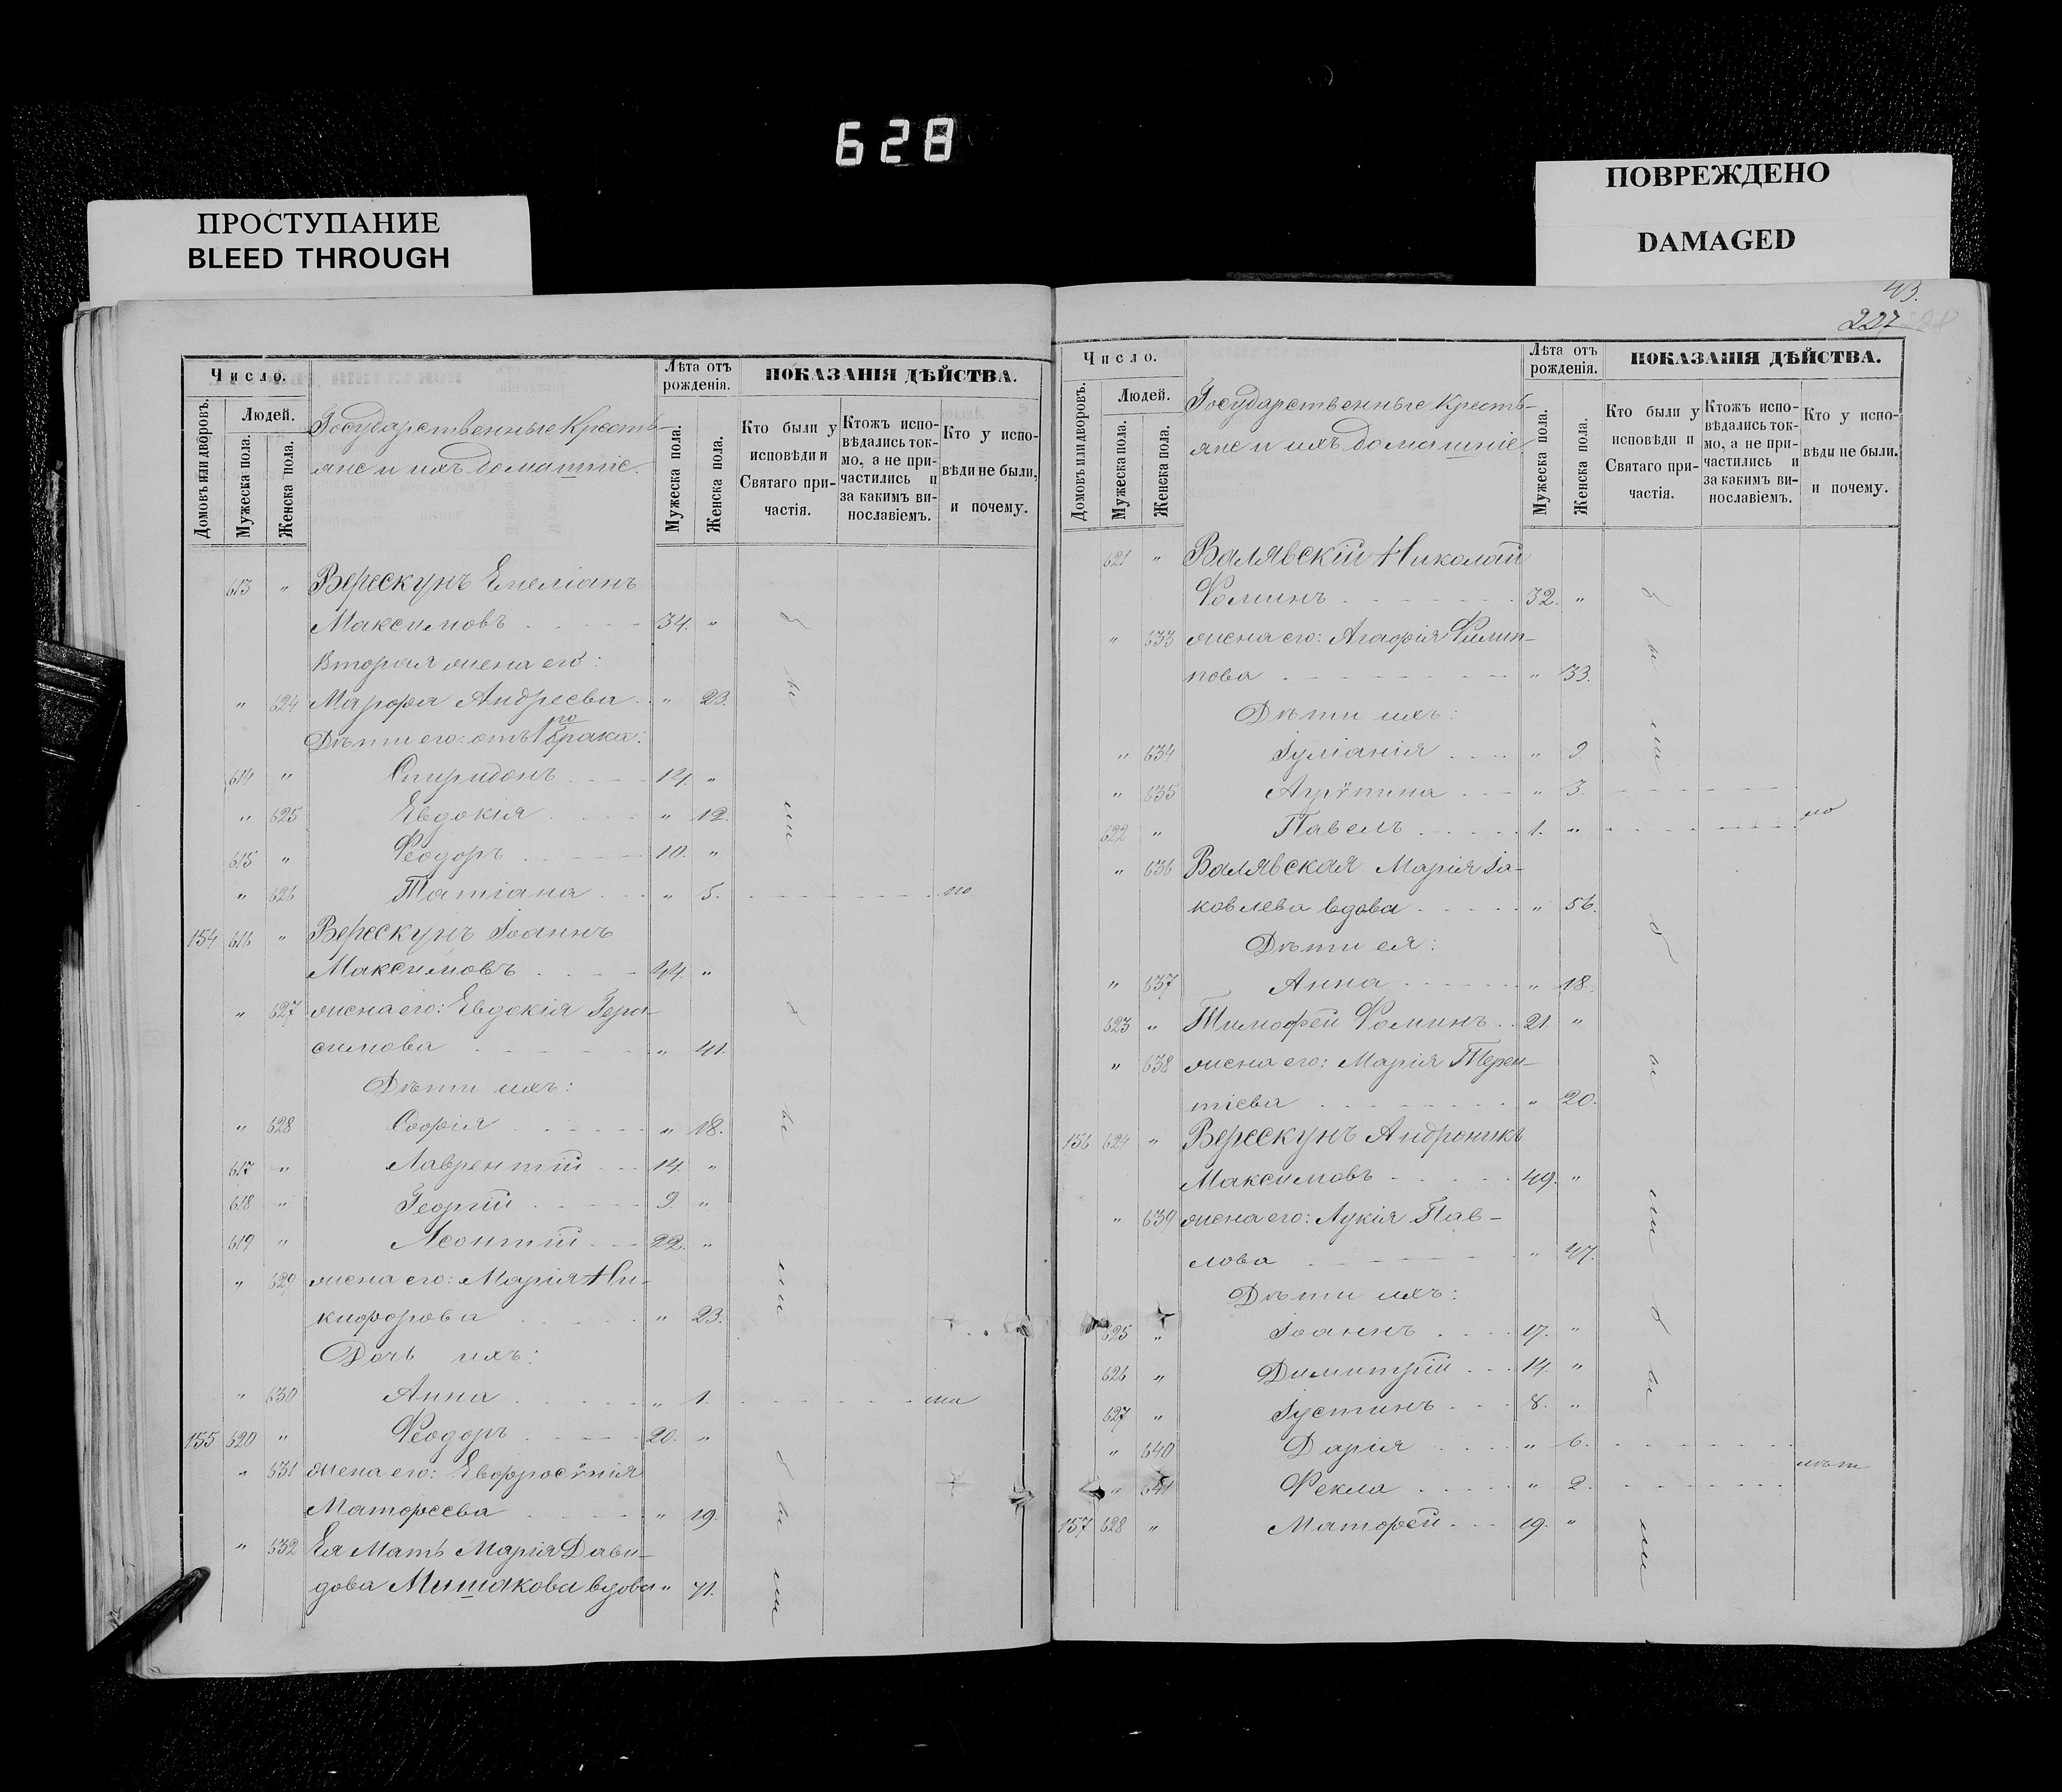 628
ПРОСТУПАНИЕ
BLEED THROUGH
ПОВРЕЖДЕНО
DAMAGED
Число.
Домовъ или дворовъ.
Людей.
Мужеска пола.
Женска пола.
Государственные Кресть-
яне и ихъ домашніе.
Лѣта отъ
рожденія.
Мужеска пола.
Женска пола.
ПОКАЗАНІЯ ДѢЙСТВА.
Кто были у
исповѣди и
Святаго при-
частія.
Ктожъ испо-
вѣдались ток-
мо, а не при-
частились и
за какимъ ви-
нославіемъ.
Кто у испо-
вѣди не были,
и почему.
613 " Верескунъ Емеліанъ
Максимовъ 34. "
Вторая жена его:
" 624 Марфа Андреева " 23.
Дѣти его: отъ 1го брака:
614 " Спиридонъ 14. "
" 625 Евдокія " 12.
615 " Феодоръ 10. "
" 626 Татіана " 5. по
154 616 " Верескунъ Іоаннъ
Максимовъ 44. "
" 627 жена его: Евдокія Гера-
симова " 41.
Дѣти ихъ:
" 628 Софія " 18.
617 " Лаврентій 14. "
618 " Георгій 9. "
619 " Леонтій 22. "
" 629 жена его: Марія Ни-
кифорова " 23.
Дочь ихъ:
" 630 Анна " 1. ма
155 620 " Феодоръ 20. "
" 631 жена его: Евфросѵнія
Матфеева " 19.
" 632 Ея Мать Марія Дави-
дова Мишакова вдова " 71.
бы
ли
бы
ли
бы
ли
43.
227
Число.
Домовъ или дворовъ.
Людей.
Мужеска пола.
Женска пола.
Государственные Кресть-
яне и ихъ домашніе.
Лѣта отъ
рожденія.
Мужеска пола.
Женска пола.
ПОКАЗАНІЯ ДѢЙСТВА.
Кто были у
исповѣди и
Святаго при-
частія.
Ктожъ испо-
вѣдались ток-
мо, а не при-
частились и
за какимъ ви-
нославіемъ.
Кто у испо-
вѣди не были.
и почему.
621 " Валявскій Николай
Фоминъ 32. "
" 633 жена его: Агафія Филип-
пова " 33.
Дѣти ихъ:
" 634 Іуліанія " 9.
" 635 Агрѵпина " 3.
622 " Павелъ 1. " ло
" 636 Валявская Марія Іа-
ковлева вдова " 56.
Дѣти ея:
" 637 Анна " 18.
623 " Тимофей Фоминъ 21. "
" 638 жена его: Марія Терен-
тіева " 20.
156 624 " Верескунъ Андроникъ
Максимовъ 49. "
" 639 жена его: Лукія Пав-
лова " 47.
Дѣти ихъ:
625 " Іоаннъ 17. "
626 " Димитрій 14. "
627 " Іустинъ 8. "
" 640 Дарія " 6.
лѣт
" 641 Фекла " 2.
157 628 " Матфей 19. "
бы
ли
бы
ли
бы
ли